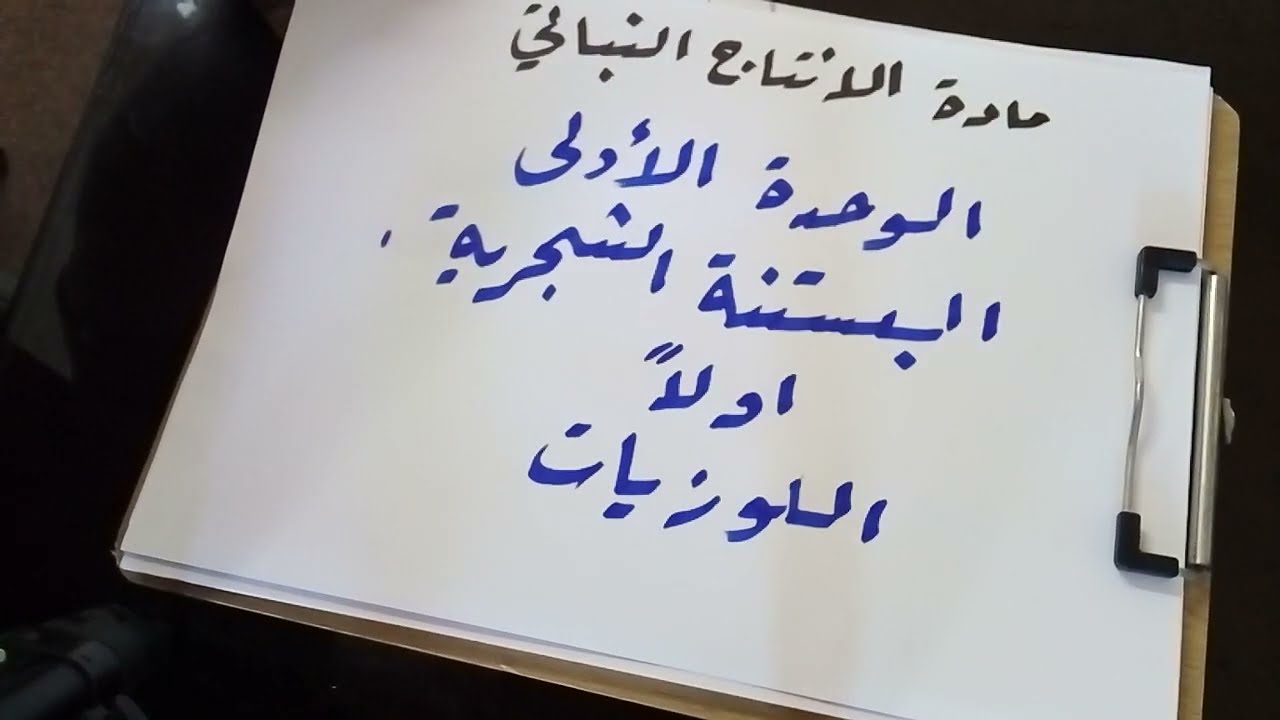 مادة الانتاج النباتي
الوحدة الأولى
البستنة الشجرية .
اولاً
اللوزيات